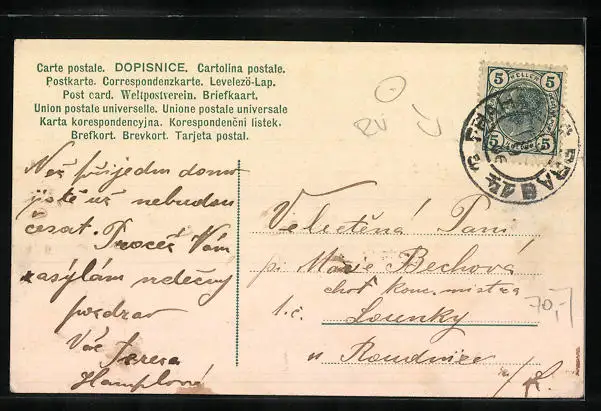 Carte postale. DOPISNICE. Cartolina postale.
Postkarte. Correspondenzkarte. Levelező-Lap.
Post card. Weltpostverein. Briefkaart.
Union postale universelle. Unione postale universale
Karta korespondencyjna. Korespondenční listek.
Brefkort. Brevkort. Tarjeta postal.
5 HELLER 5
5 5
PRAG 14
RU
Než přijedu domů
jistě už nebudou
česat. Vám
zasýlám
pozdrav
Vaše Teresa
Hamplová
Velectěná Paní
pí Marie Bechová
choť
č. Lounky
u Roudnice
70,-